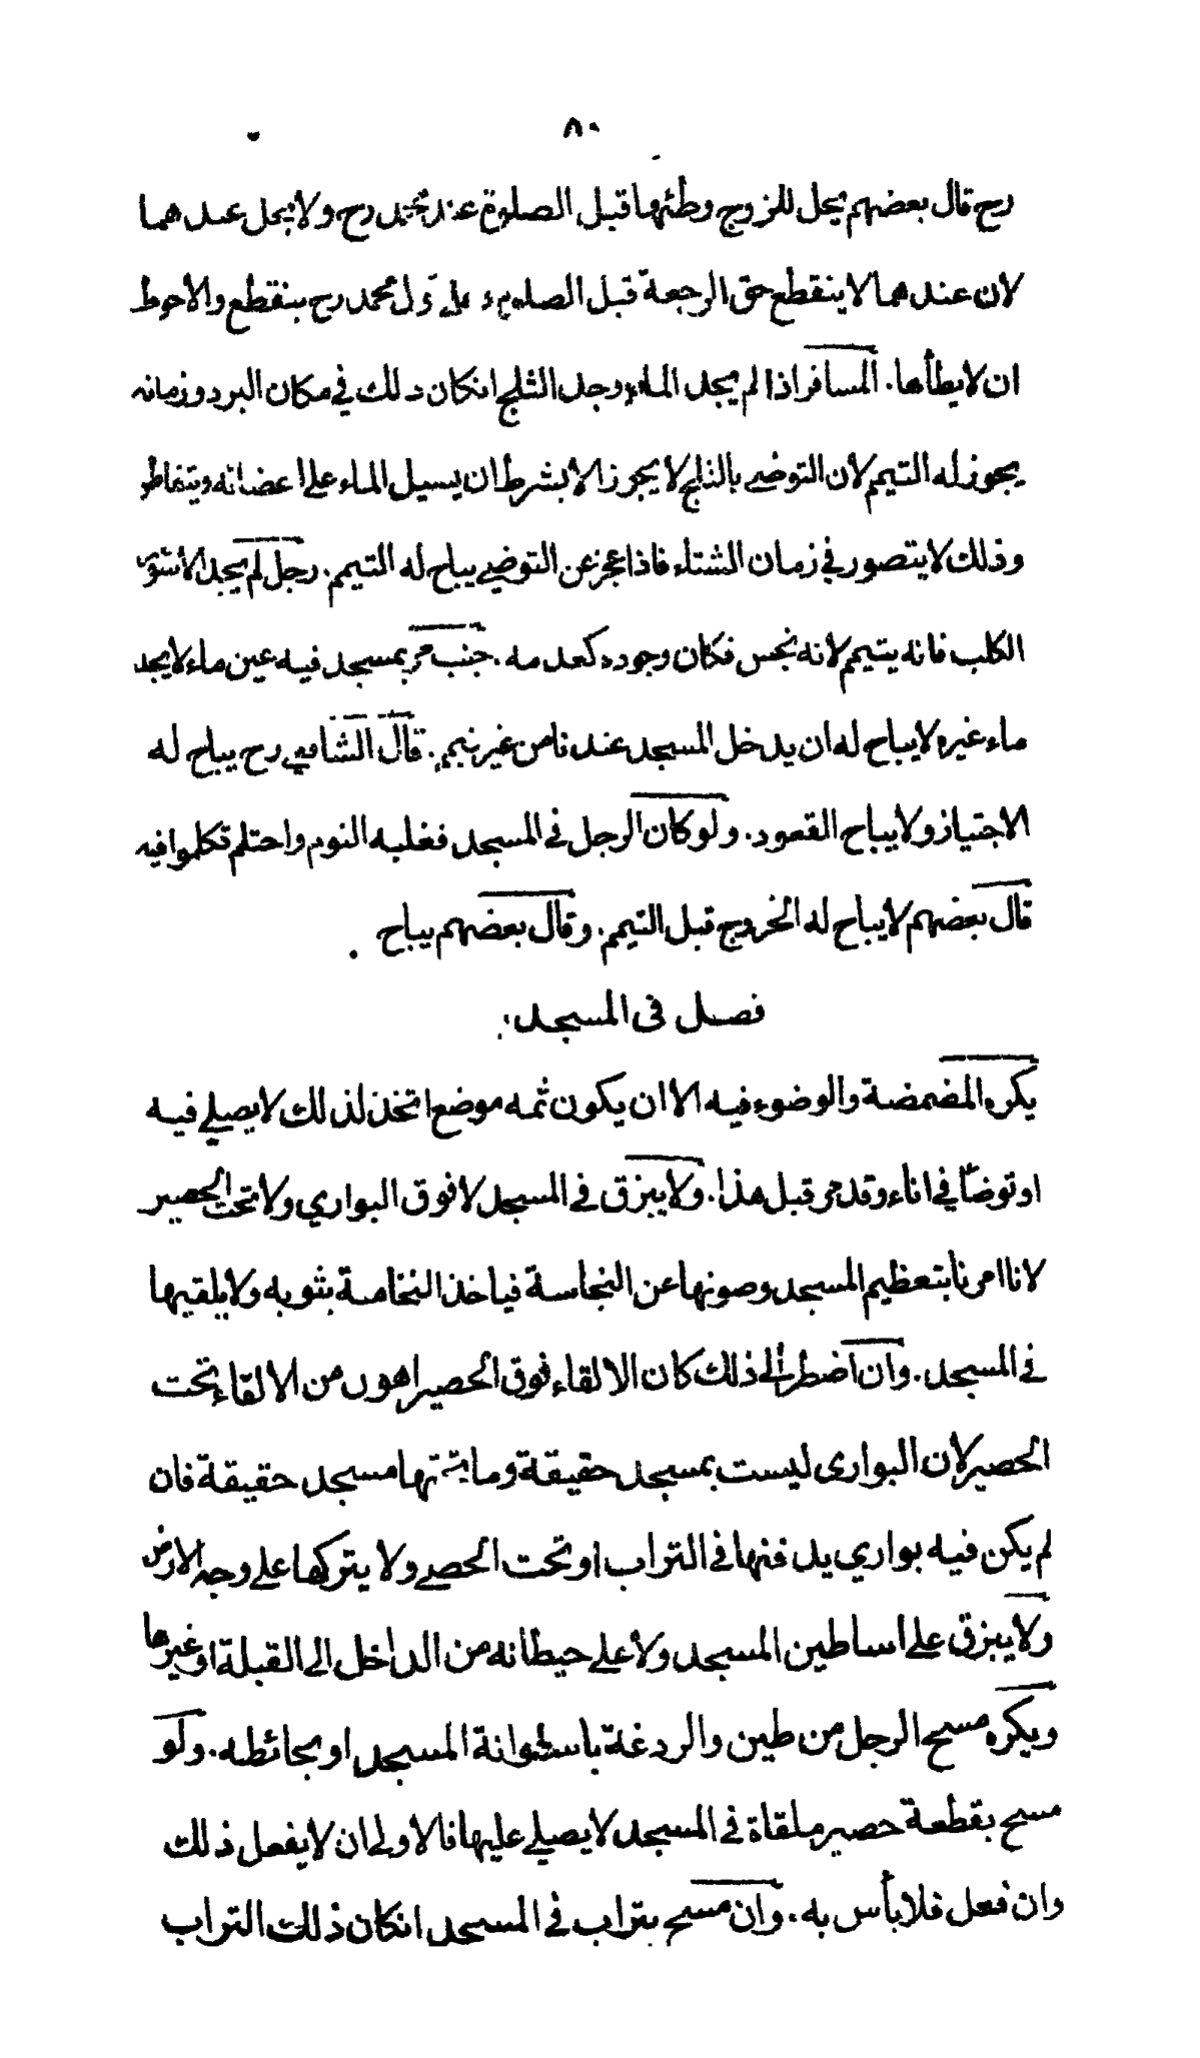 ٨٠
رح قال بعضهم يحل للزوج وطئها قبل الصلوة عند محمد رح ولا يحل عندهما
لان عندهما لا ينقطع حق الرجعة قبل الصلوة و على قول محمد رح ينقطع والاحوط
ان لا يطأها. المسافر اذا لم يجد الماء وجد الثلج انكان ذلك في مكان البرد وزمانه
يجوز له التيمم لان التوضي بالثلج لا يجوز الا بشرط ان يسيل الماء على اعضائه ويتقاطر
وذلك لا يتصور في زمان الشتاء فاذا عجز عن التوضي يباح له التيمم. رجل لم يجد الا سؤر
الكلب فانه يتيمم لانه نجس فكان وجوده كعدمه. جنب مر بمسجد فيه عين ماء لا يجد
ماء غيره لا يباح له ان يدخل المسجد عندنا من غير تيمم. قال الشافعي رح يباح له
الاجتياز ولا يباح القعود. ولو كان الرجل في المسجد فغلبه النوم واحتلم تكلموا فيه
قال بعضهم لا يباح له الخروج قبل التيمم. وقال بعضهم يباح .
فصل فى المسجد
يكره المضمضة والوضوء فيه الا ان يكون ثمه موضع اتخذ لذلك لا يصلي فيه
او توضأ في اناء وقد مر قبل هذا. ولا يبزق في المسجد لا فوق البواري ولا تحت الحصير
لانا امرنا بتعظيم المسجد وصونها عن النجاسة فياخذ النخامة بثوبه ولا يلقيها
في المسجد. وان اضطر الى ذلك كان الالقاء فوق الحصير اهون من الالقاء تحت
الحصير لان البوارى ليست بمسجد حقيقة وما تحتها مسجد حقيقة فان
لم يكن فيه بواري يدفنها في التراب او تحت الحصى ولا يتركها على وجه الارض
ولا يبزق على اساطين المسجد ولا على حيطانه من الداخل الى القبلة او غيرها
ويكره مسح الرجل من طين والردغة باسطوانة المسجد او بحائطه. ولو
مسح بقطعة حصير ملقاة في المسجد لا يصلي عليها فالاولى ان لا يفعل ذلك
وان فعل فلا بأس به. وان مسح بتراب في المسجد انكان ذلك التراب